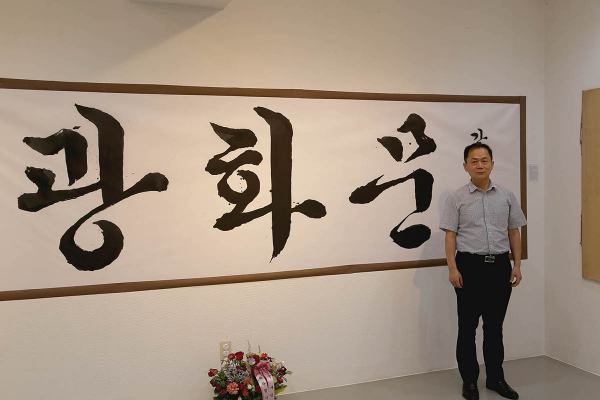 광화문